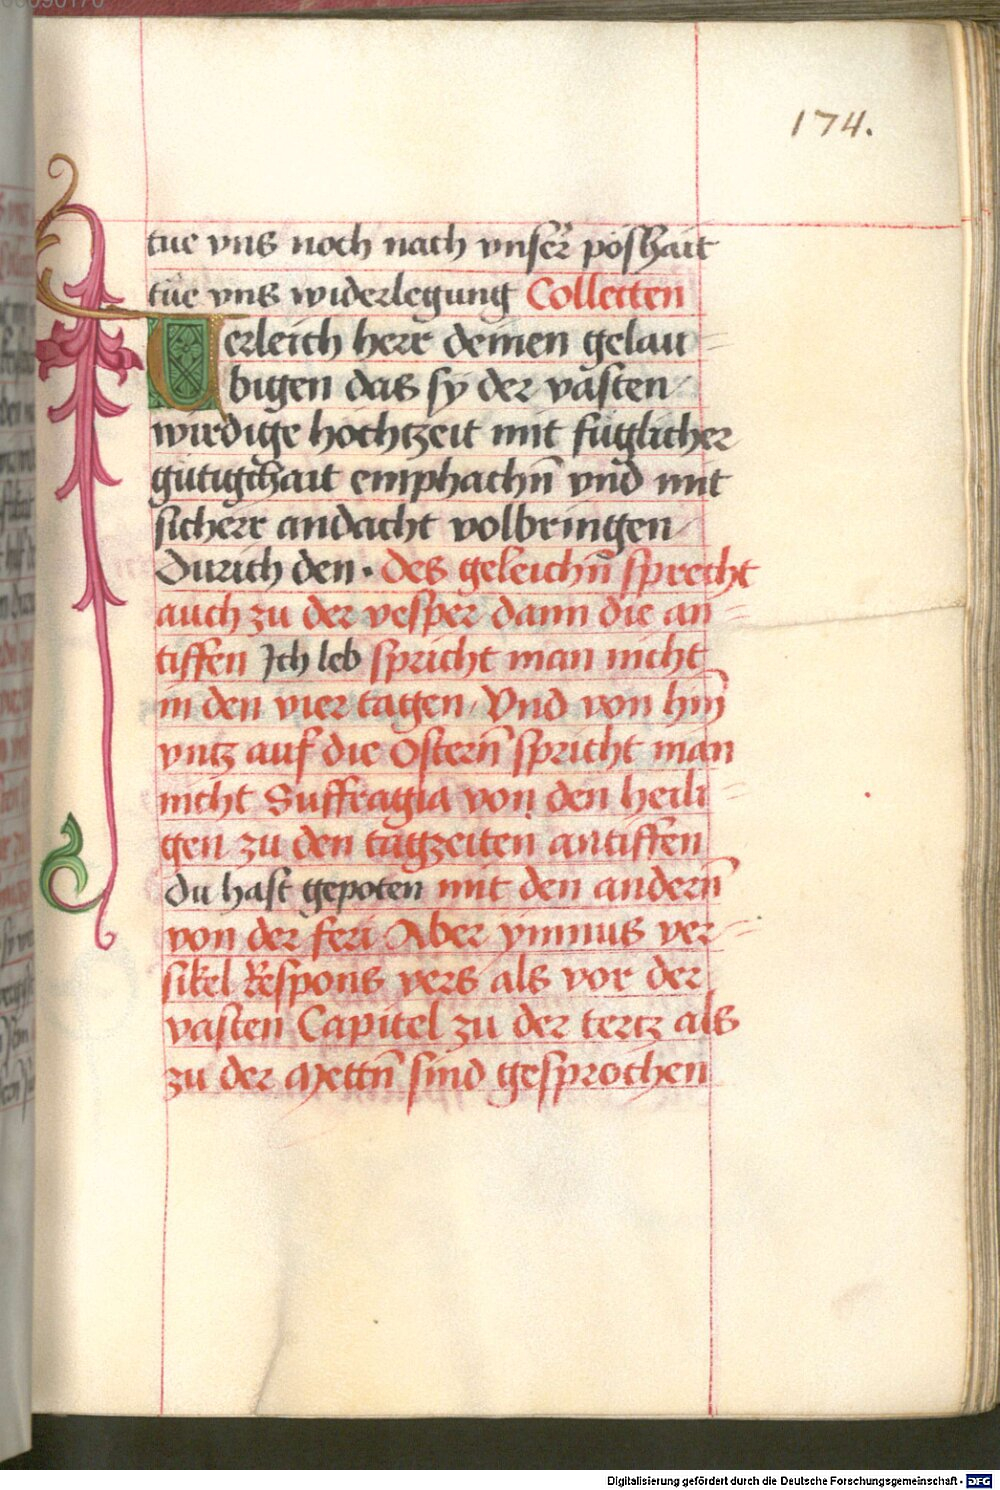 174.
tue vns noch nach vnser̄ poshait
tůe vns widerlegung Collecten
Verleich herr deinen gelau=
bigen das sy der vasten
wirdige hochtzeit mit füglicher
gütigchait emphachn̄ vnd mit
sicherr andacht volbringen
Durich den. des geleichn̄ sprecht
auch zu der vesper dann die an=
tiffen Ich leb spricht man nicht
in den vier tagen. Vnd von hin̄
vntz auf die Ostern̄ spricht man
nicht Suffragia von den heili=
gen zu den tagzeiten antiffen
du hast gepoten mit den andern̄
von der feri Aber ymnus ver=
sikel Respons vers als vor der
vasten Capitel zu der tertz als
zu der Mettn̄ sind gesprochen
Digitalisierung gefördert durch die Deutsche Forschungsgemeinschaft - DFG